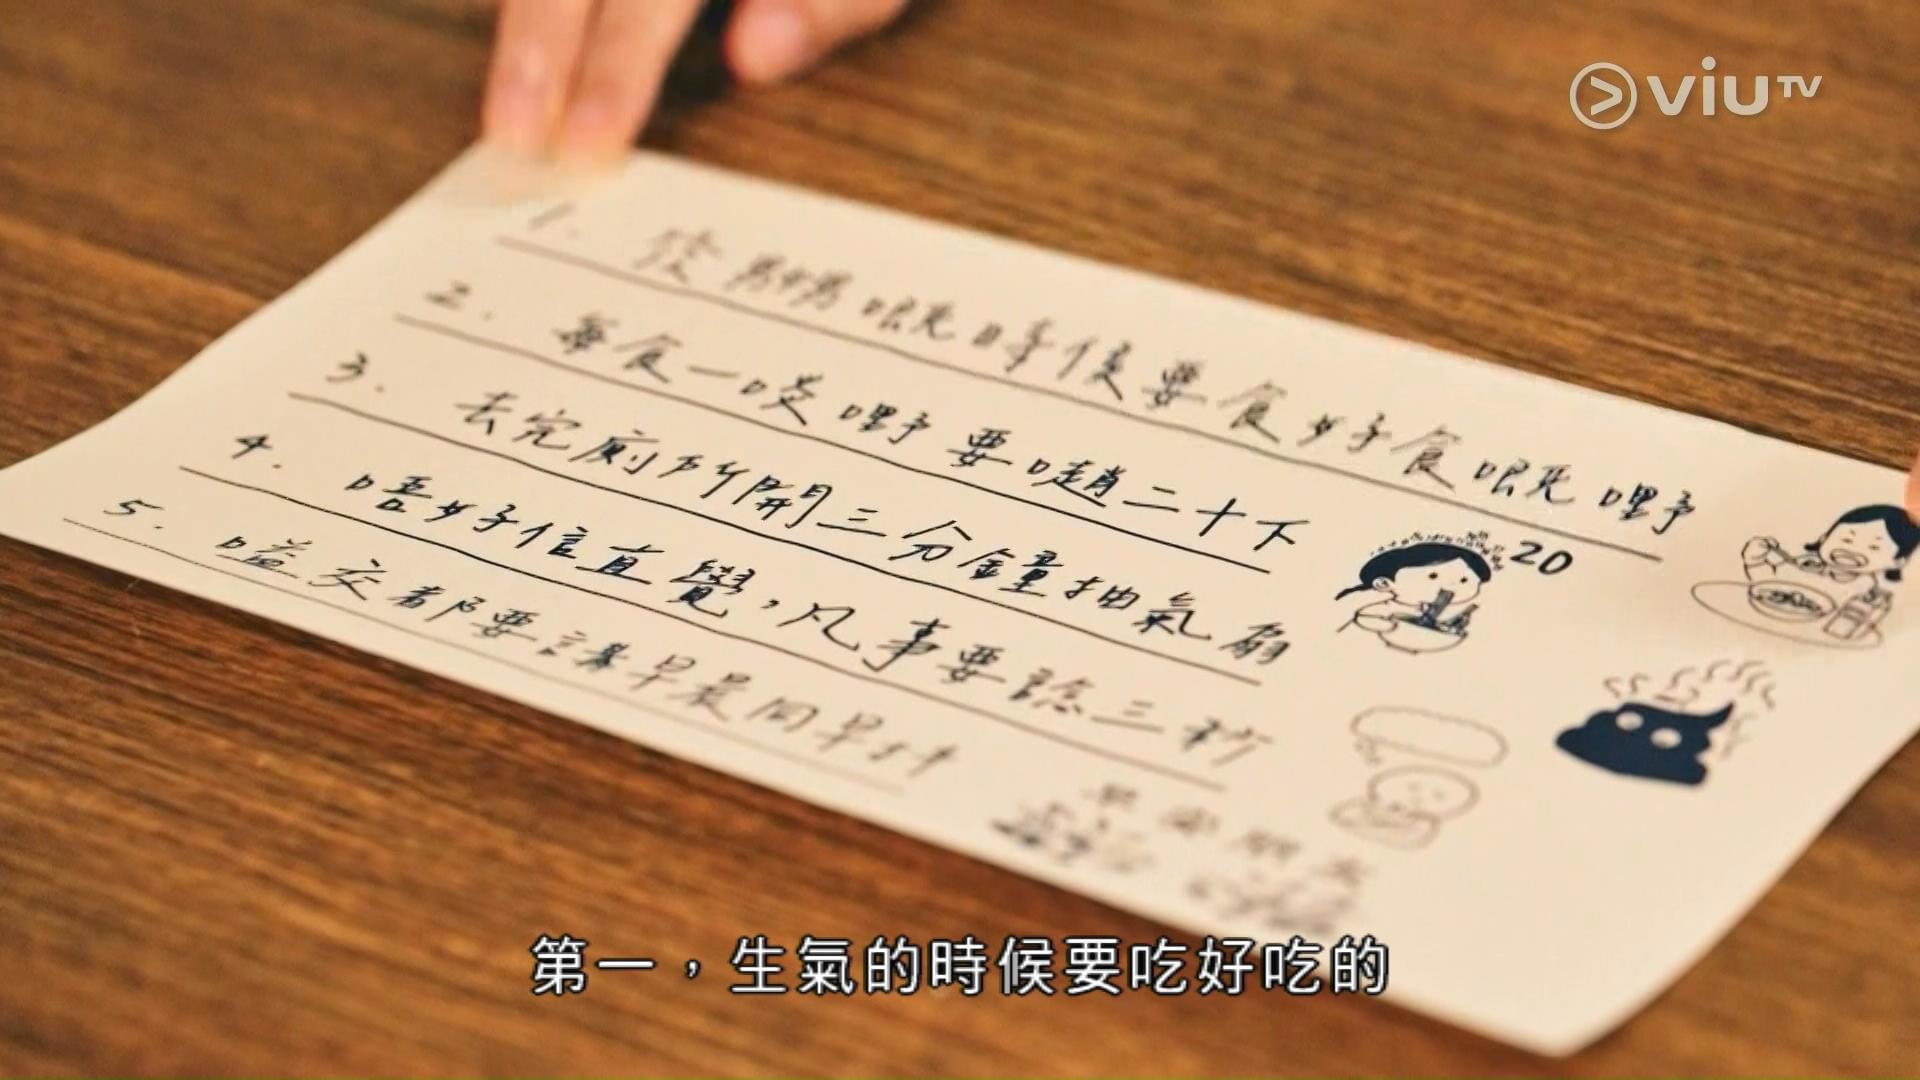 viuTV
1. 發嬲嘅時候要食好食嘅嘢
2. 每食一啖嘢要噍二十下
20
3. 去完廁所開三分鐘抽氣扇
4. 唔好信直覺，凡事要諗三秒
5. 嗌交都要講早晨同早抖
第一，生氣的時候要吃好吃的